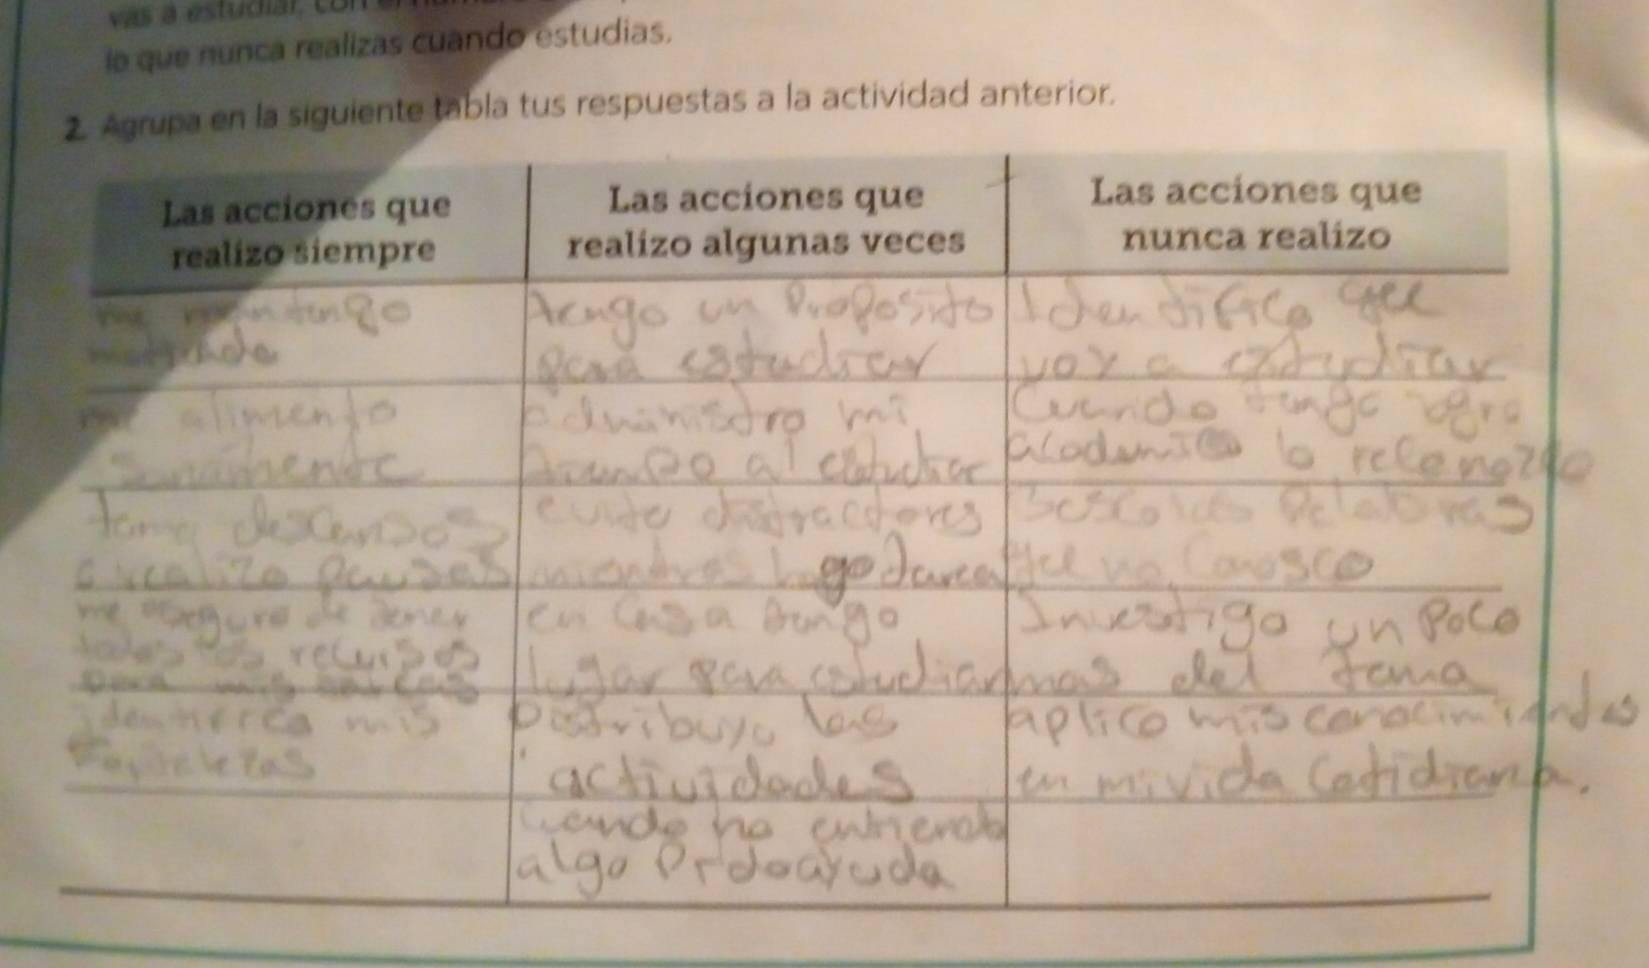 vas a estudiar, con el
lo que nunca realizas cuando estudias.
2. Agrupa en la siguiente tabla tus respuestas a la actividad anterior.
Las acciones que
realizo siempre
Las acciones que
realizo algunas veces
Las acciones que
nunca realizo
me mantengo
motivado
me alimento
sanamente
tomo descansos
o realizo pausas
me aseguro de tener
todos los recursos
para mis tareas
identifico mis
fortalezas
tengo un Proposito
para estudiar
administro mi
tiempo al estudiar
evito distractores
mientras hago tarea
en casa tengo
lugar para estudiar
Distribuyo las
actividades
cuando no entiendo
algo Pido ayuda
Identifico que
voy a estudiar
Cuando tengo logro
academico lo reconozco
busco las Palabras
que no Conosco
Investigo un Poco
mas del tema
aplico mis conocimientos
en mi vida Cotidiana.